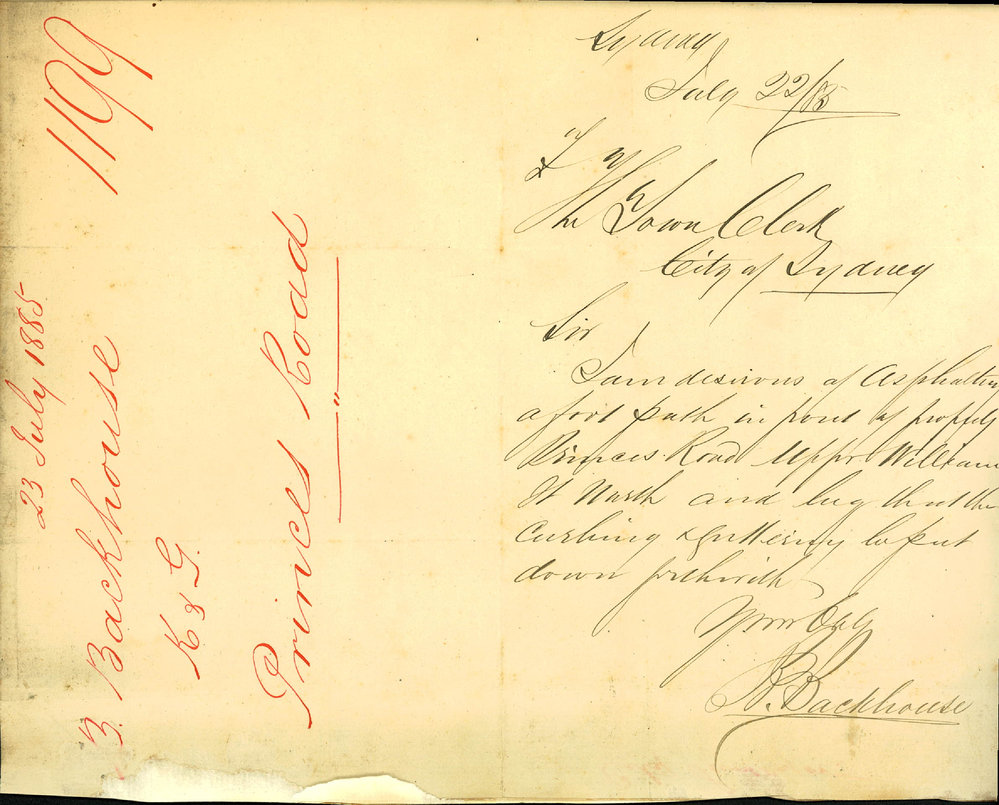 1199
23 July 1885
B. Backhouse
K & G.
Princes Road
"
Sydney
July 22/85
The Town Clerk
City of Sydney
Sir
I am desirous of Asphalting
a foot path in front of property
Princes Road Upper William
St North and beg that the
Curbing & guttering be put
down forthwith
Your Obdt
B. Backhouse